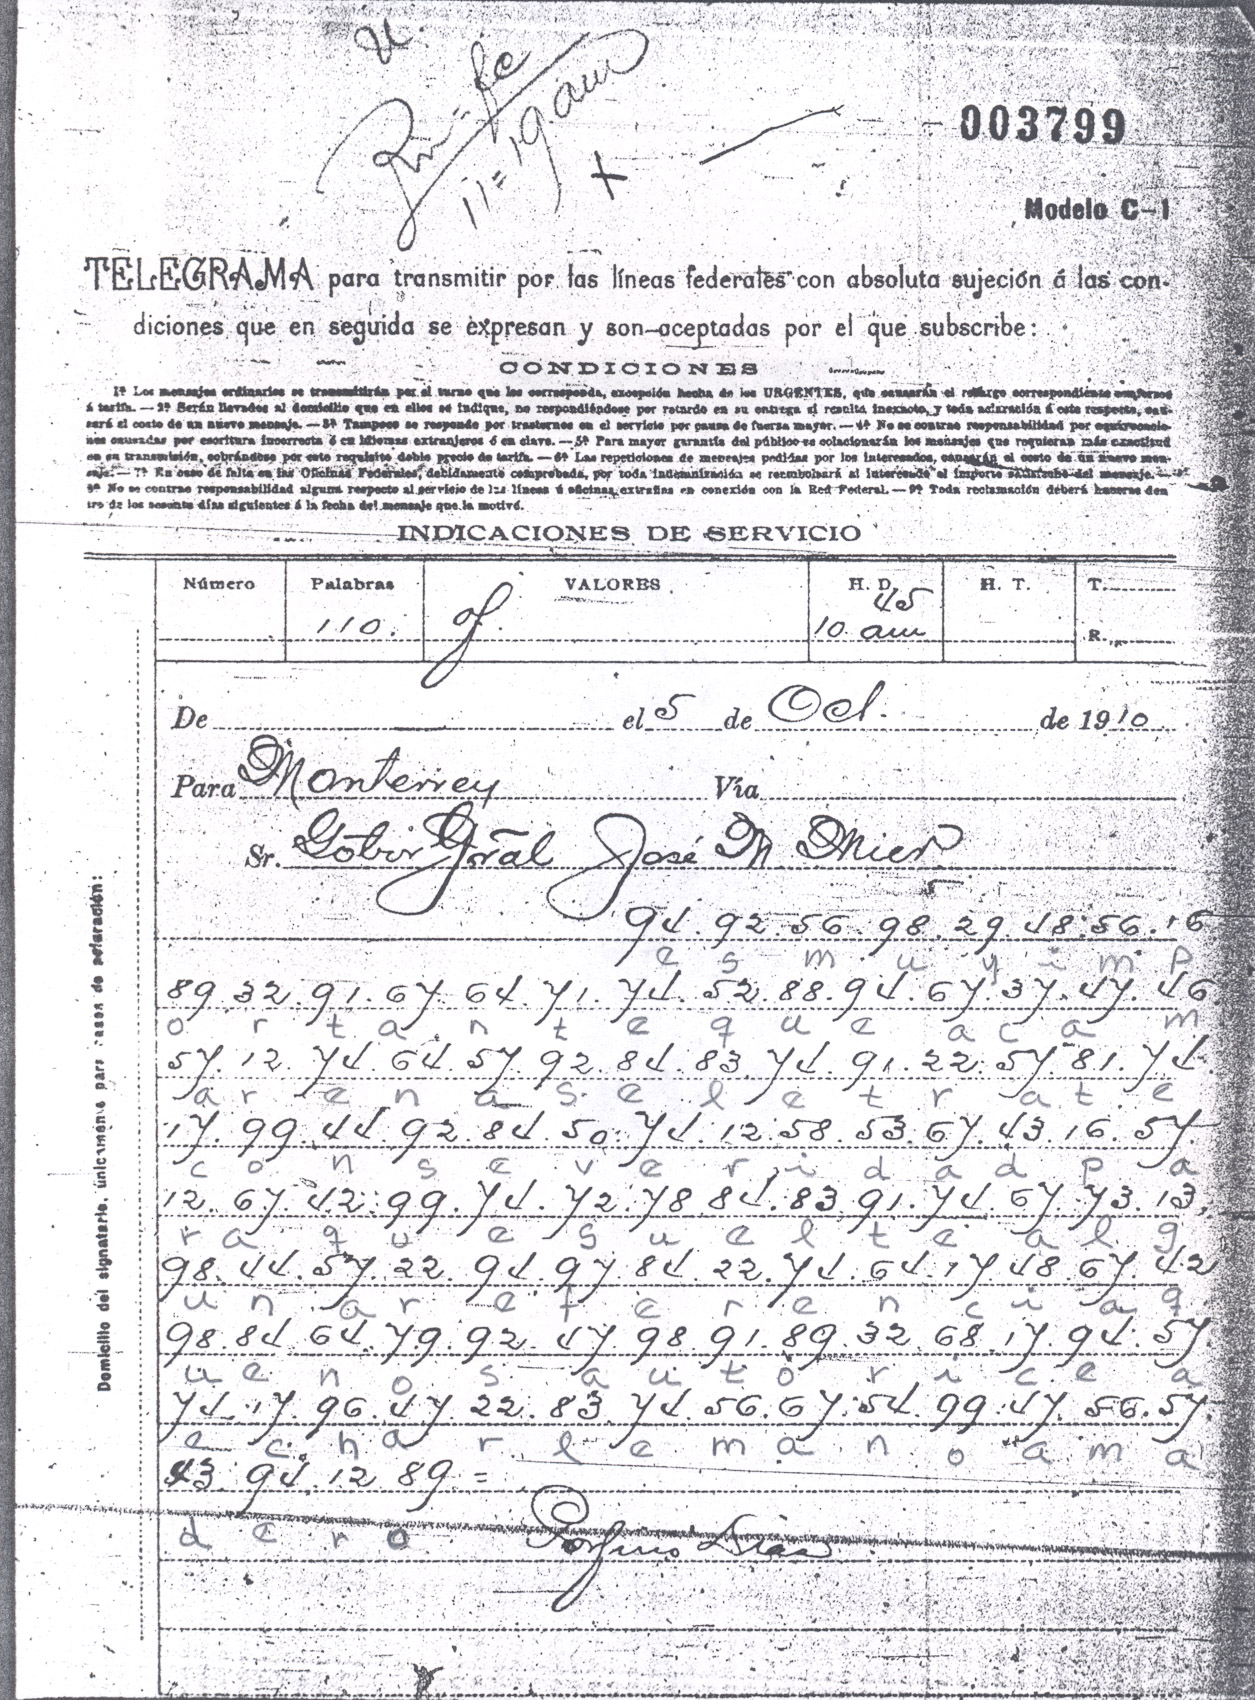 U.
11=19 am
003799
Modelo C-1
TELEGRAMA para transmitir por las líneas federales con absoluta sujeción á las con-
diciones que en seguida se expresan y son aceptadas por el que subscribe:
CONDICIONES
1ª Los mensajes ordinarios se transmitirán por el turno que les corresponda, excepción hecha de los URGENTES, que causarán el recargo correspondiente conforme
á tarifa. — 2ª Serán llevados al domicilio que en ellos se indique, no respondiéndose por retardo en su entrega si resulta inexacto, y toda aclaración á este respecto, cau-
sará el costo de un nuevo mensaje. — 3ª Tampoco se responde por trastornos en el servicio por causa de fuerza mayor. — 4ª No se contrae responsabilidad por equivocacio-
nes causadas por escritura incorrecta ó en idiomas extranjeros ó en clave. — 5ª Para mayor garantía del público se colacionarán los mensajes que requieran más exactitud
en su transmisión, cobrándose por este requisito doble precio de tarifa. — 6ª Las repeticiones de mensajes pedidas por los interesados, causarán el costo de un nuevo men-
saje. — 7ª En caso de falta en las Oficinas Federales, debidamente comprobada, por toda indemnización se reembolsará al interesado el importe satisfecho del mensaje. —
8ª No se contrae responsabilidad alguna respecto al servicio de las líneas ú oficinas extrañas en conexión con la Red Federal. — 9ª Toda reclamación deberá hacerse den
tro de los sesenta días siguientes á la fecha del mensaje que la motivó.
INDICACIONES DE SERVICIO
Número Palabras VALORES H. D. H. T. T.
110. 45 10 am R.
De el 5 de Oct. de 1910
Para Monterrey Vía
Sr. Gobor Gral José M Mier
94. 92. 56. 98. 29. 48. 56. 16
e s m u y i m p
89. 32. 91. 67. 64. 71. 74. 52. 88. 94. 67. 37. 47. 46
o r t a n t e q u e a c a m
57. 12. 74. 64. 57. 92. 84. 83. 74. 91. 22. 57. 81. 74.
a r e n a s e l e t r a t e
17. 99. 44. 92. 84. 50. 74. 12. 58. 53. 67. 43. 16. 57.
c o n s e v e r i d a d p a
12. 67. 42. 99. 74. 72. 78. 84. 83. 91. 74. 67. 73. 13.
r a q u e s u e l t e a l g
98. 44. 57. 22. 94. 97. 84. 22. 74. 64. 17. 48. 67. 42
u n a r e f e r e n c i a q
98. 84. 64. 79. 92. 47. 98. 91. 89. 32. 68. 17. 94. 57
u e n o s a u t o r i c e a
74. 17. 96. 47. 22. 83. 74. 56. 67. 54. 99. 47. 56. 57.
e c h a r l e m a n o a m a
43. 94. 12. 89 =
d e r o
Porfirio Diaz
Domicilio del signatario, únicamente para casos de aclaración: